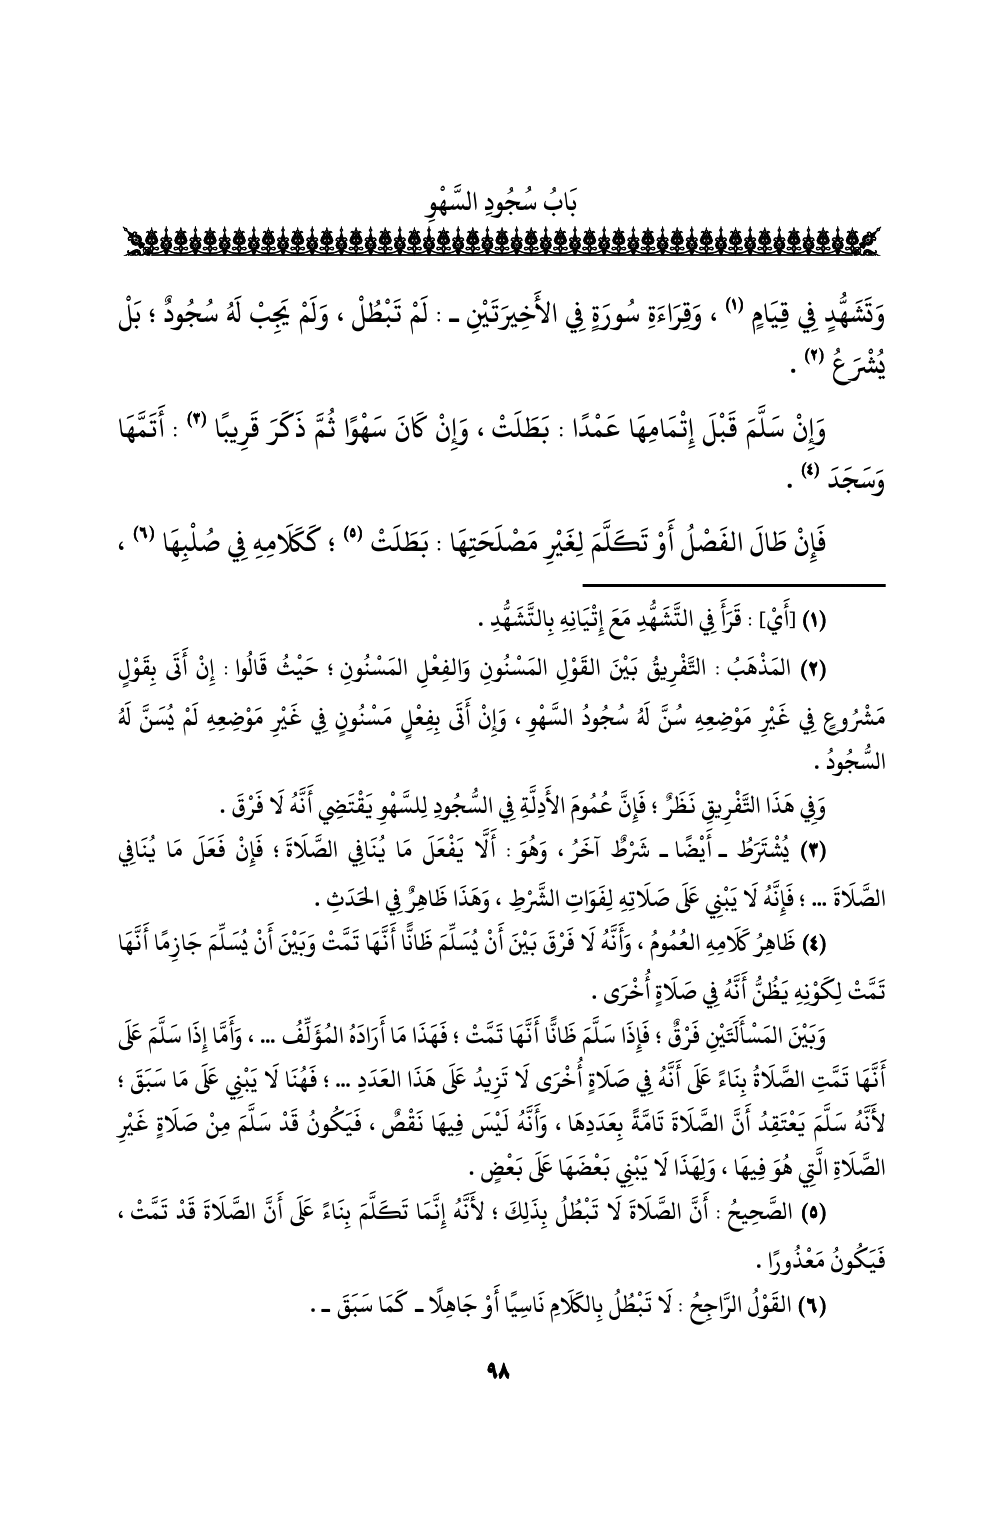 بَابُ سُجُودِ السَّهْوِ
وَتَشَهُّدٍ فِي قِيَامٍ (١) ، وَقِرَاءَةِ سُورَةٍ فِي الأَخِيرَتَيْنِ ـ : لَمْ تَبْطُلْ ، وَلَمْ يَجِبْ لَهُ سُجُودٌ ؛ بَلْ
يُشْرَعُ (٢) .
وَإِنْ سَلَّمَ قَبْلَ إِتْمَامِهَا عَمْدًا : بَطَلَتْ ، وَإِنْ كَانَ سَهْوًا ثُمَّ ذَكَرَ قَرِيبًا (٣) : أَتَمَّهَا
وَسَجَدَ (٤) .
فَإِنْ طَالَ الفَصْلُ أَوْ تَكَلَّمَ لِغَيْرِ مَصْلَحَتِهَا : بَطَلَتْ (٥) ؛ كَكَلَامِهِ فِي صُلْبِهَا (٦) ،
(١) [أَيْ] : قَرَأَ فِي التَّشَهُّدِ مَعَ إِتْيَانِهِ بِالتَّشَهُّدِ .
(٢) المَذْهَبُ : التَّفْرِيقُ بَيْنَ القَوْلِ المَسْنُونِ وَالفِعْلِ المَسْنُونِ ؛ حَيْثُ قَالُوا : إِنْ أَتَى بِقَوْلٍ
مَشْرُوعٍ فِي غَيْرِ مَوْضِعِهِ سُنَّ لَهُ سُجُودُ السَّهْوِ ، وَإِنْ أَتَى بِفِعْلٍ مَسْنُونٍ فِي غَيْرِ مَوْضِعِهِ لَمْ يُسَنَّ لَهُ
السُّجُودُ .
وَفِي هَذَا التَّفْرِيقِ نَظَرٌ ؛ فَإِنَّ عُمُومَ الأَدِلَّةِ فِي السُّجُودِ لِلسَّهْوِ يَقْتَضِي أَنَّهُ لَا فَرْقَ .
(٣) يُشْتَرَطُ ـ أَيْضًا ـ شَرْطٌ آخَرُ ، وَهُوَ : أَلَّا يَفْعَلَ مَا يُنَافِي الصَّلَاةَ ؛ فَإِنْ فَعَلَ مَا يُنَافِي
الصَّلَاةَ ... ؛ فَإِنَّهُ لَا يَبْنِي عَلَى صَلَاتِهِ لِفَوَاتِ الشَّرْطِ ، وَهَذَا ظَاهِرٌ فِي الحَدَثِ .
(٤) ظَاهِرُ كَلَامِهِ العُمُومُ ، وَأَنَّهُ لَا فَرْقَ بَيْنَ أَنْ يُسَلِّمَ ظَانًّا أَنَّهَا تَمَّتْ وَبَيْنَ أَنْ يُسَلِّمَ جَازِمًا أَنَّهَا
تَمَّتْ لِكَوْنِهِ يَظُنُّ أَنَّهُ فِي صَلَاةٍ أُخْرَى .
وَبَيْنَ المَسْأَلَتَيْنِ فَرْقٌ ؛ فَإِذَا سَلَّمَ ظَانًّا أَنَّهَا تَمَّتْ ؛ فَهَذَا مَا أَرَادَهُ المُؤَلِّفُ ... ، وَأَمَّا إِذَا سَلَّمَ عَلَى
أَنَّهَا تَمَّتِ الصَّلَاةُ بِنَاءً عَلَى أَنَّهُ فِي صَلَاةٍ أُخْرَى لَا تَزِيدُ عَلَى هَذَا العَدَدِ ... ؛ فَهُنَا لَا يَبْنِي عَلَى مَا سَبَقَ ؛
لأَنَّهُ سَلَّمَ يَعْتَقِدُ أَنَّ الصَّلَاةَ تَامَّةً بِعَدَدِهَا ، وَأَنَّهُ لَيْسَ فِيهَا نَقْصٌ ، فَيَكُونُ قَدْ سَلَّمَ مِنْ صَلَاةٍ غَيْرِ
الصَّلَاةِ الَّتِي هُوَ فِيهَا ، وَلِهَذَا لَا يَبْنِي بَعْضَهَا عَلَى بَعْضٍ .
(٥) الصَّحِيحُ : أَنَّ الصَّلَاةَ لَا تَبْطُلُ بِذَلِكَ ؛ لأَنَّهُ إِنَّمَا تَكَلَّمَ بِنَاءً عَلَى أَنَّ الصَّلَاةَ قَدْ تَمَّتْ ،
فَيَكُونُ مَعْذُورًا .
(٦) القَوْلُ الرَّاجِحُ : لَا تَبْطُلُ بِالكَلَامِ نَاسِيًا أَوْ جَاهِلًا ـ كَمَا سَبَقَ ـ .
٩٨